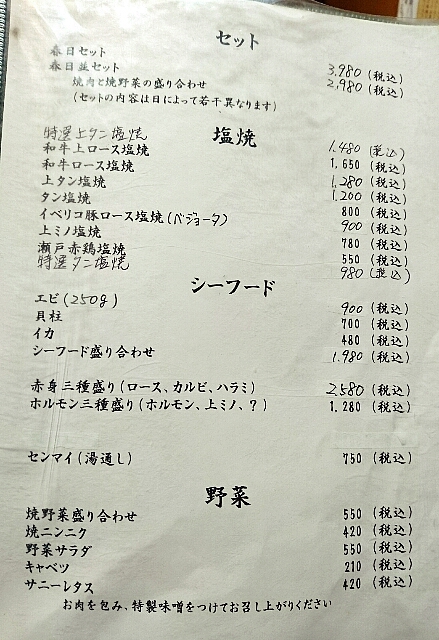 セット
春日セット 3,980(税込)
春日並セット 2,980(税込)
焼肉と焼野菜の盛り合わせ
(セットの内容は日によって若干異なります)
塩焼
特選上タン塩焼 1,480(税込)
和牛上ロース塩焼 1,650(税込)
和牛ロース塩焼 1,280(税込)
上タン塩焼 1,200(税込)
タン塩焼 800(税込)
イベリコ豚ロース塩焼(バジョータ) 900(税込)
上ミノ塩焼 780(税込)
瀬戸赤鶏塩焼 550(税込)
特選タン塩焼 980(税込)
シーフード
エビ(250g) 900(税込)
貝柱 700(税込)
イカ 480(税込)
シーフード盛り合わせ 1,980(税込)
赤身三種盛り(ロース、カルビ、ハラミ) 2,580(税込)
ホルモン三種盛り(ホルモン、上ミノ、?) 1,280(税込)
センマイ(湯通し) 750(税込)
野菜
焼野菜盛り合わせ 550(税込)
焼ニンニク 420(税込)
野菜サラダ 550(税込)
キャベツ 210(税込)
サニーレタス 420(税込)
お肉を包み、特製味噌をつけてお召し上がりください